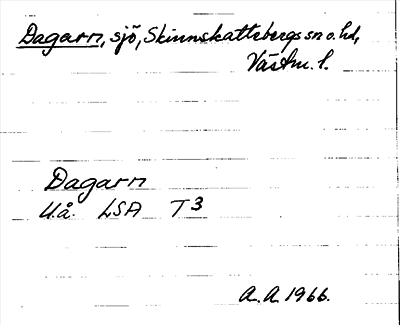 Dagarn, sjö, Skinnskattebergs sn o. hd,
Västm. l.
Dagarn
U.å. LSA T3
A.A. 1966.